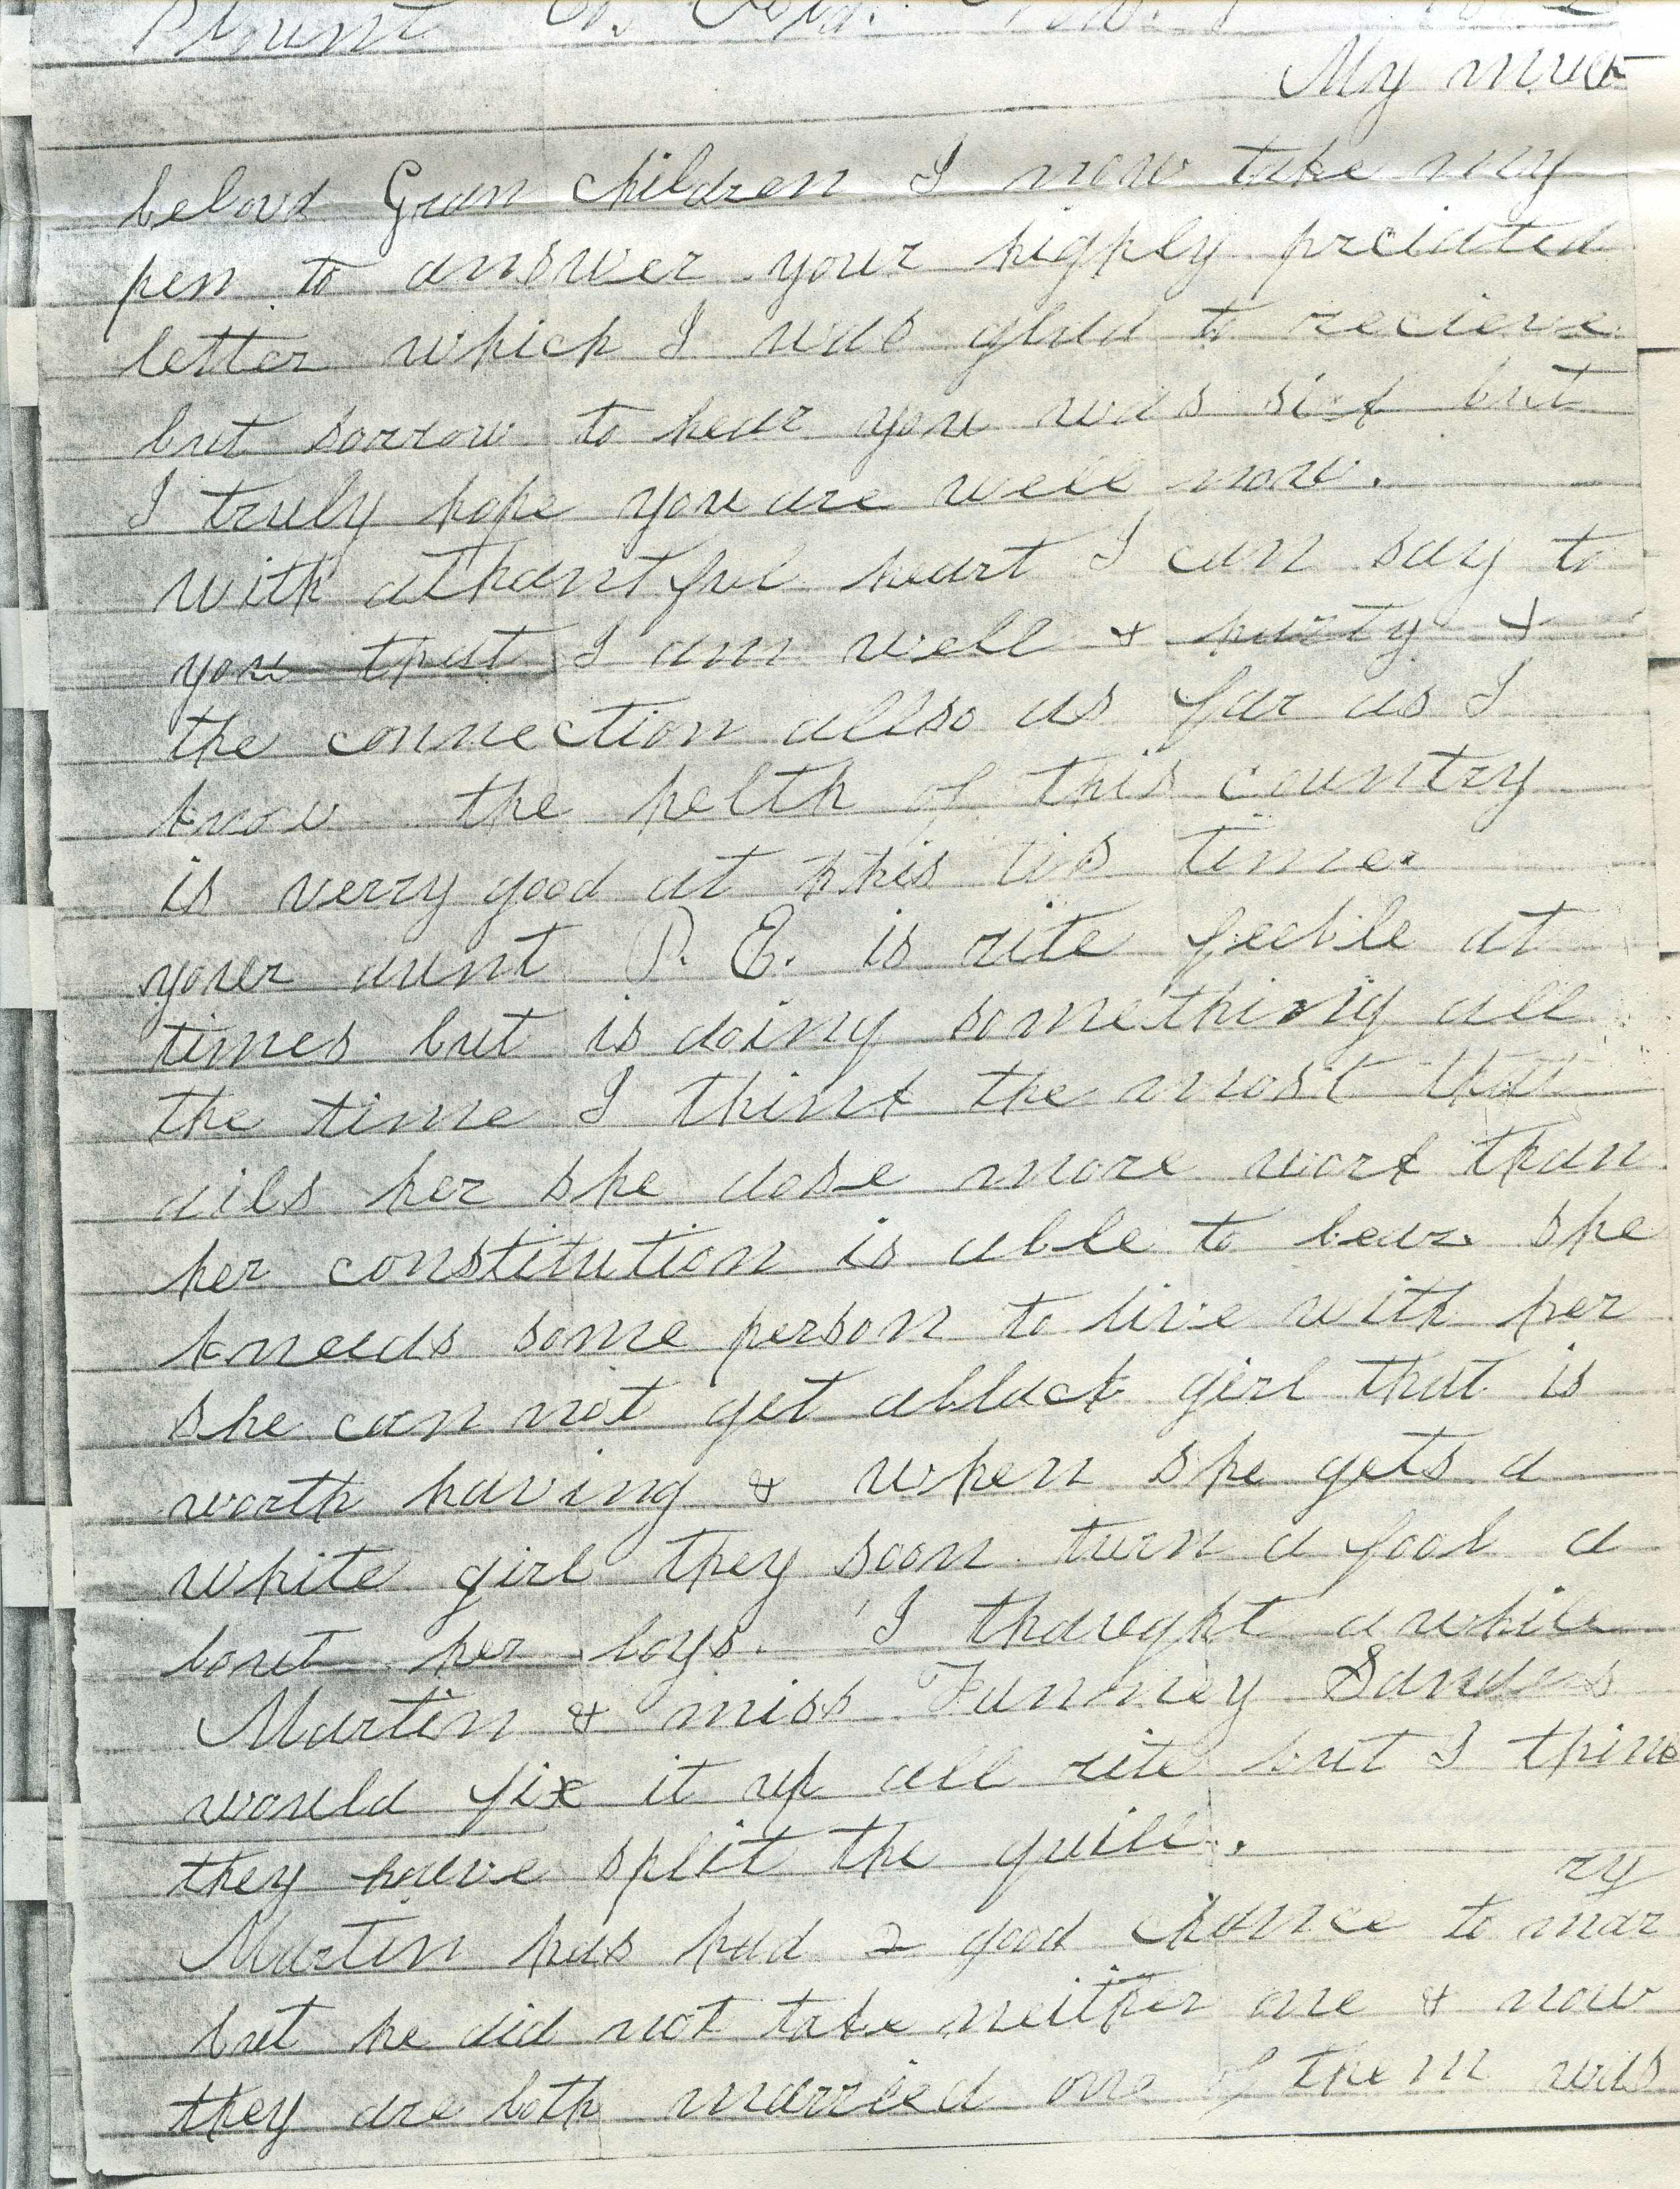 Blount Co.
My much
beloud Gran children I now take my
pen to answer your highly preciated
letter which I was glad to recieve
but sorrow to hear you was sick but
I truly hope you are well now.
with athankful heart I can say to
you that I am well & harty &
the connection allso as far as I
know the helth of this country
is verry good at this time
youer aunt P. E. is rite feeble at
times but is doing something all
the time I think the most that
ails her she dose more work than
her constitution is able to bear she
kneeds some person to live with her
she can not get ablack girl that is
worth having & when she gets a
white girl they soon turn a fool a
bout her boys. I thought awhile
Martin & miss Funney Sanders
would fix it up all rite but I think
they have split the quill.
Martin has had 2 good chance to marry
but he did not take neither one & now
they are both married one of them was